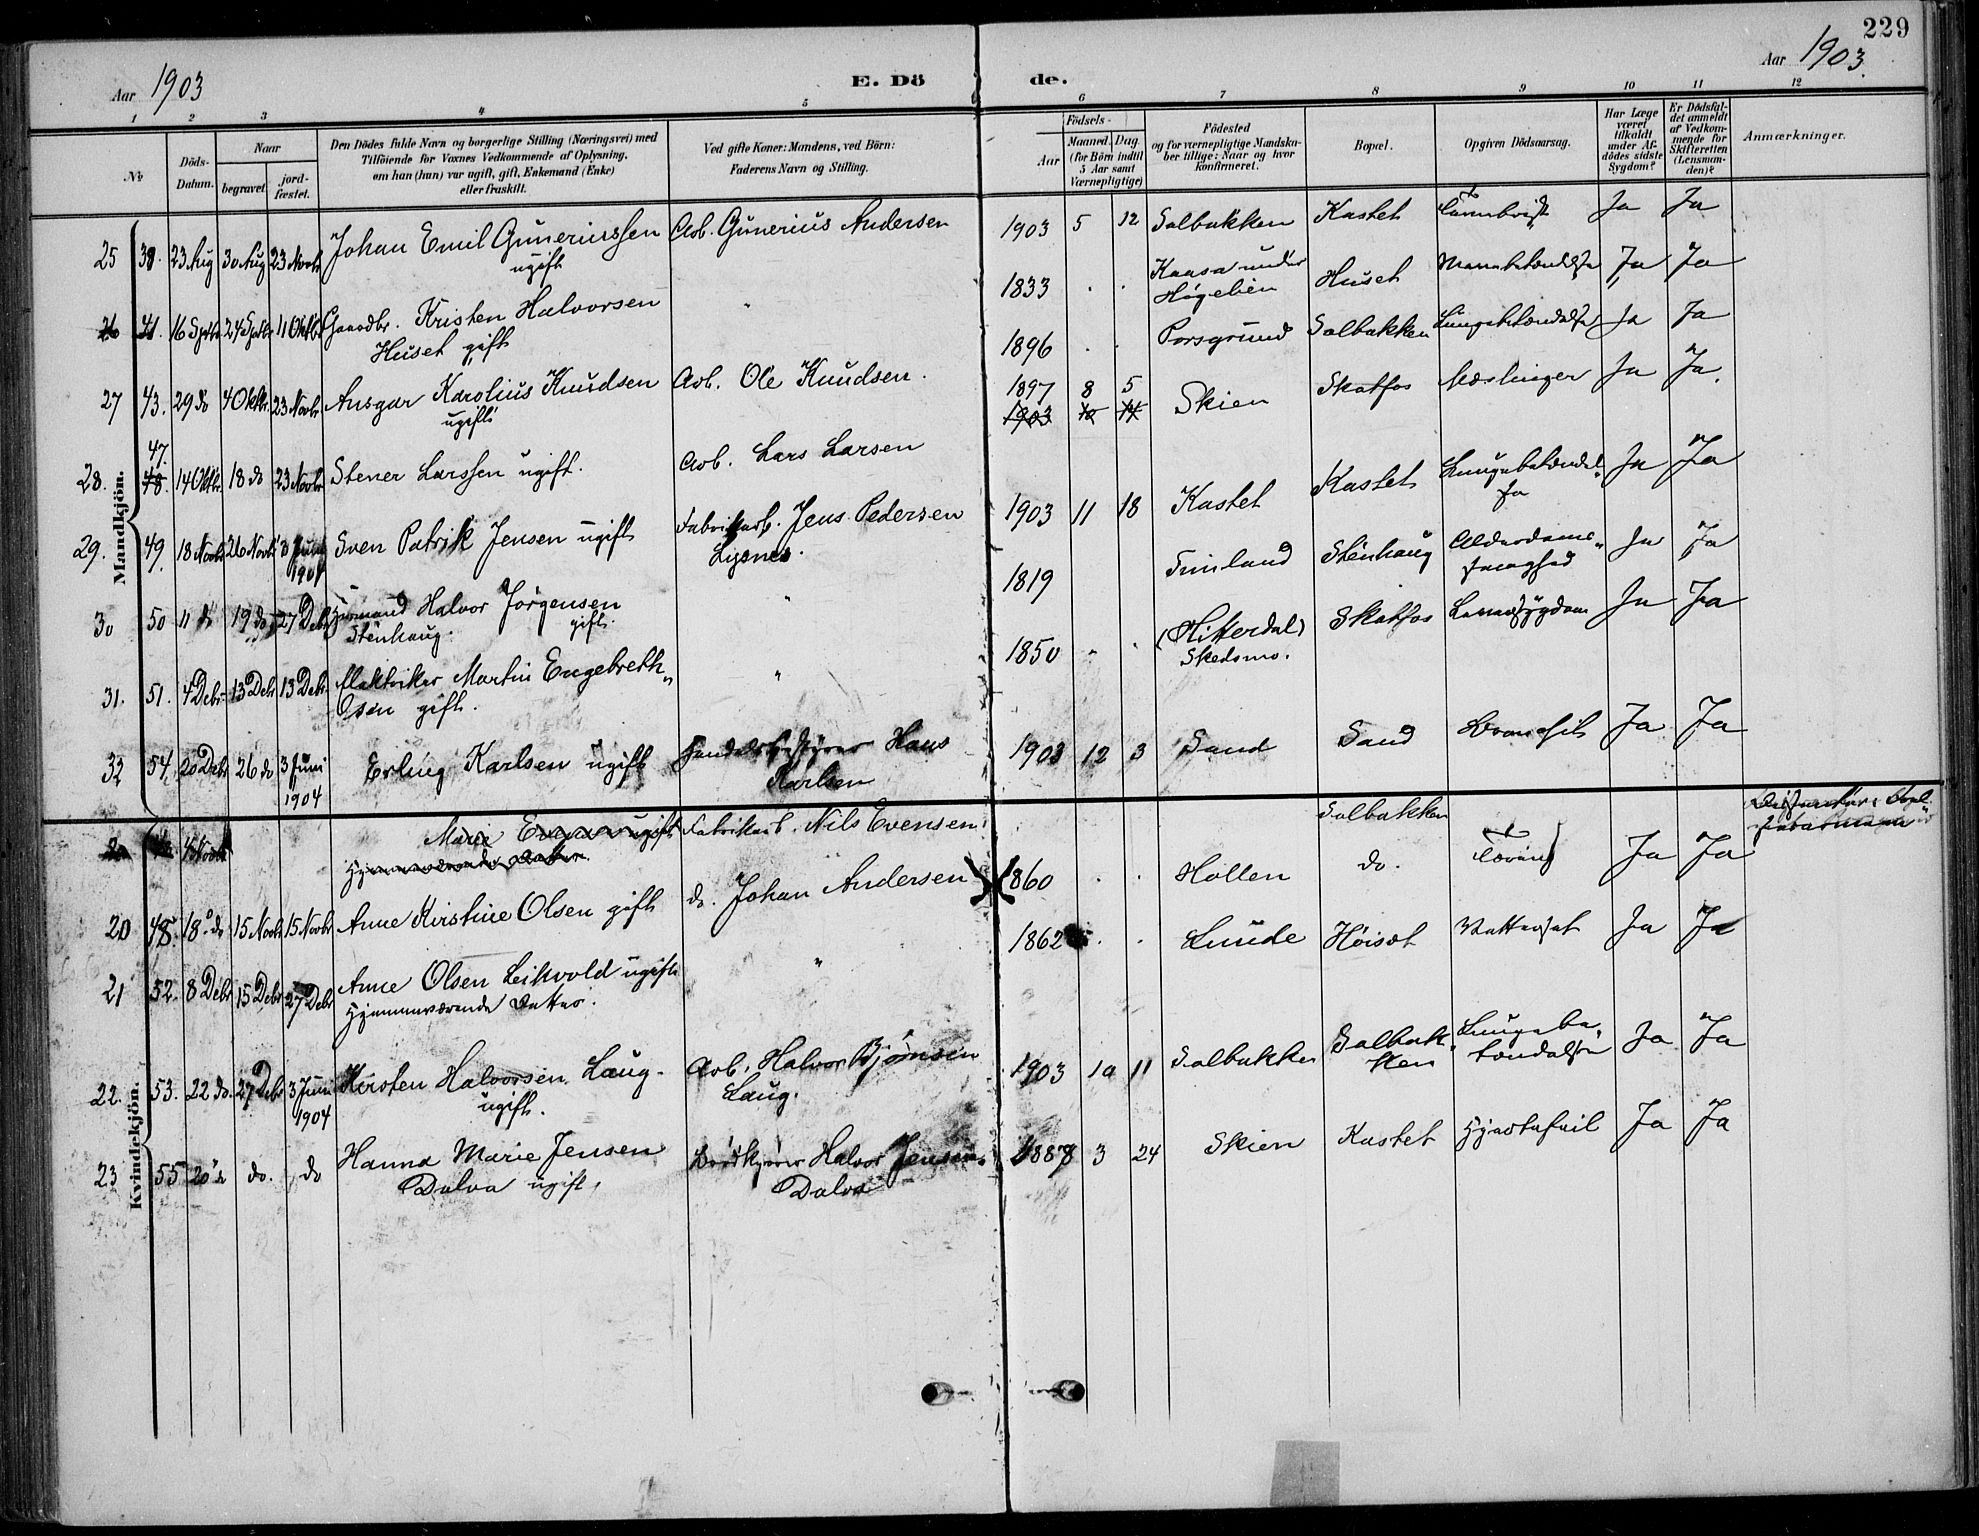 229
Aar 1903
E. Dö
de.
Aar 1903.
1 2 3 4 5 6 7 8 9 10 11 12
No
Döds-
Datum.
Naar
begravet.
jord-
fæstet.
Den Dödes fulde Navn og borgerlige Stilling (Næringsvei) med
Tilföiende for Voxnes Vedkommende af Oplysning,
om han (hun) var ugift, gift, Enkemand (Enke)
eller fraskilt.
Ved gifte Koner: Mandens, ved Börn:
Faderens Navn og Stilling.
Födsels-
Aar
Maaned. Dag.
(for Börn indtil
5 Aar samt
Værnepligtige)
Födested
og for værnepligtige Mandska-
ber tillige: Naar og hvor
konfirmeret.
Bopæl.
Opgiven Dödsaarsag.
Har Læge
været
tilkaldt
under Af-
dödes sidste
Sygdom?
Er Dödsfal-
det anmeldt
af Vedkom-
mende for
Skifteretten
(Lensman-
den)?
Anmærkninger.
Mandkjön.
25 23 Aug 30 Aug 23 Novbr Johan Emil Gunerius­sen Arb. Gunerius Andersen 1903 5 12 Solbakken Kastet Ja Ja
ugift
26 41. 16 Septb 24 Septb 11 Oktbr Gaardbr. Kristen Halvorsen " 1833 . . Kaasa under Huset Ja Ja
Huset gift
Høgelien
27 43. 29 do 4 Oktbr. 23 Novbr. Ansgar Karolius Knudsen Arb. Ole Knudsen. 1896 . . Porsgrund Solbakken Lungebetændelse Ja Ja
ugift
47.
28. 48. 14 Oktbr 18 do 23 Novbr Stener Larssen ugift. Arb. Lars Larsen 1897 8 5 Skien Skotfos Meslinger Ja Ja.
1903 10 14
29. 49. 18 Novbr 26 Novbr 3 Juni Sven Patrik Jensen ugift Fabrikarb. Jens Pedersen 1903 11 18 Kastet Kastet Lungebetændel- Ja Ja
1904
Lysnes.
se
30 50 11 do 19 do 27 Debr Husmand Halvor Jørgensen " 1819 Stenhaug Alderdoms- Ja Ja
Stenhaug. gift.
svaghed
31. 51. 4 Debr. 13 Debr 13 Debr Elektriker Martin Engebreth- " 1850 . . (Hitterdal) Skotfos Ja Ja
Osen gift.
Skedsmo.
32 54. 20 Debr 26 do 3 Juni Erling Karlsen ugift Handelsbestyrer Hans 1903 12 3 Sand Sand Ja Ja
1904
Karlsen
Kvindekjön.
Marie ugift Fabrikarb. Nils Evensen Solbakken
Hjemmeværende datter.
20 48. 18 do 15 Novbr 15 Novbr Anne Kirstine Olsen gift do. Johan Andersen 1860 . . Hollen do. Tæring Ja Ja
21 52. 8 Debr 15 Debr 27 Debr Anne Olsen Leikvold ugift " 1862 . . Lunde Høisæt Vattersot Ja Ja
Hjemmeværende Datter.
22. 53. 22 do. 27 Debr 3 Juni Kirsten Halvorsen Laug- Arb. Halvor Bjørnsen 1903 10 11 Solbakken Solbak- Lungebe- Ja Ja
1904
ugift.
Laug.
ken
tændelse
23 55 do. do Hanna Marie Jensen Brødkjører Halvor Jensen 1888 3 24 Skien Kastet Hjertefeil Ja Ja
Dalva ugift.
Dalva